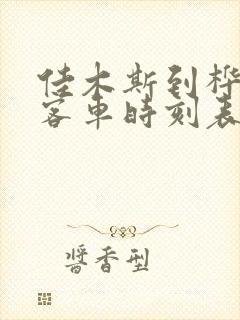 佳木斯到桦
客车时刻表
酱香型